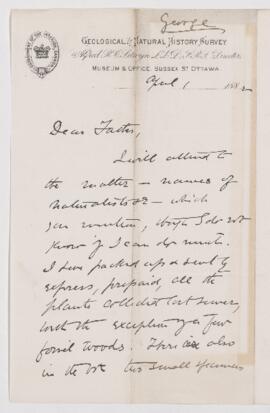 George
GEOLOGICAL & NATURAL HISTORY SURVEY
Alfred R. C. Selwyn L.L.D. F.R.S. Director
MUSEUM & OFFICE, SUSSEX ST. OTTAWA.
April 1 1882
Dear Father,
I will attend to
the matter – names of
naturalists &c – which
you mention, though I do not
know if I can do much.
I have packed up & sent by
express, prepaid, all the
plants collected last summer,
with the exception of a few
fossil woods. There is also
in the box two small specimens